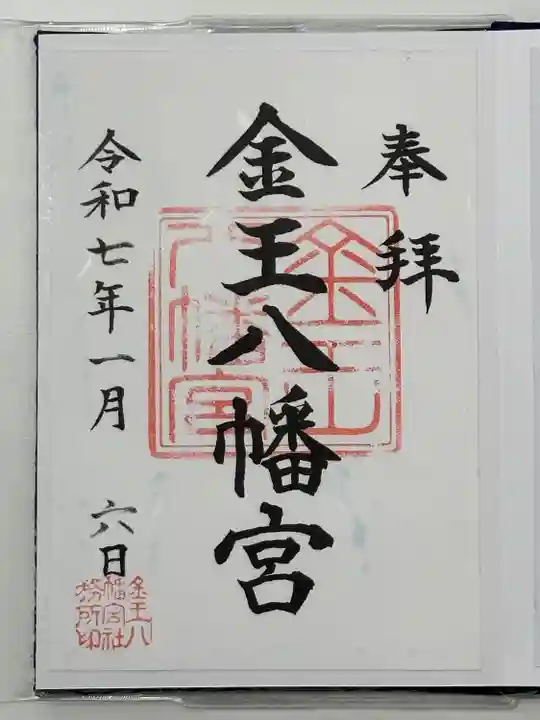 奉拝
金王八幡宮
令和七年一月六日
金王
八幡宮
金王八
幡宮社
務所印